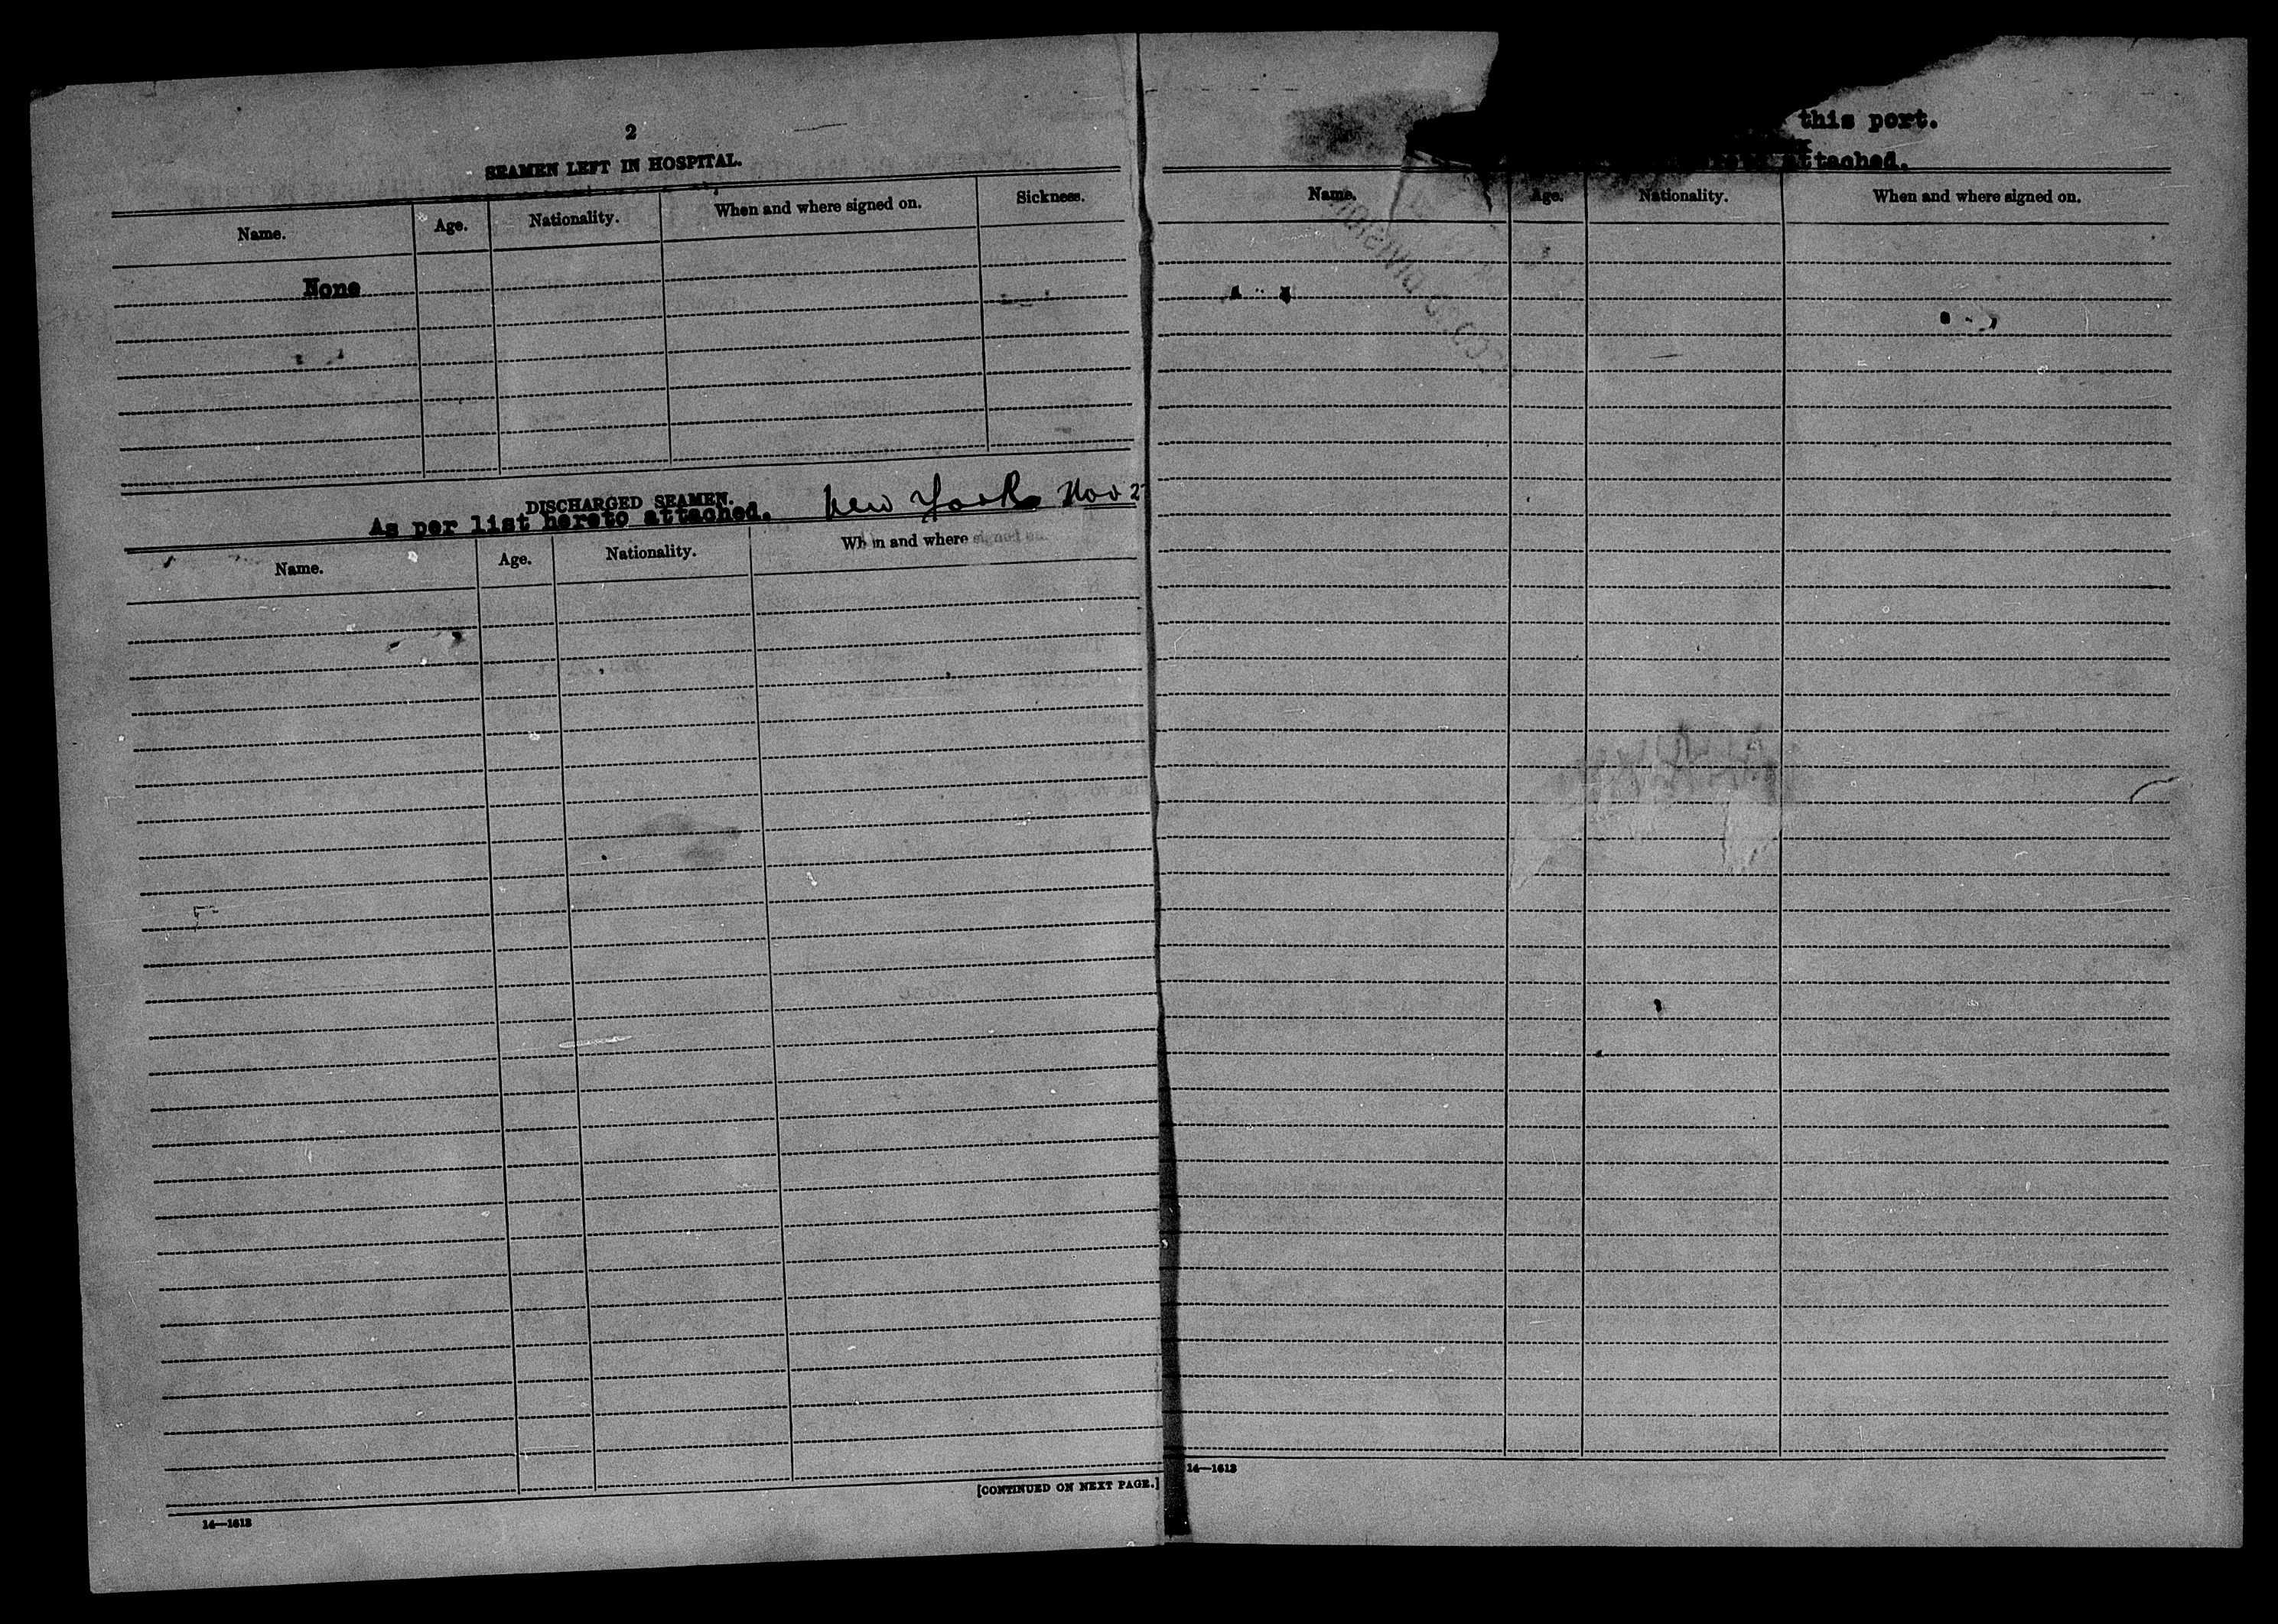 2
SEAMEN LEFT IN HOSPITAL.
Name. Age. Nationality. When and where signed on. Sickness.
None
DISCHARGED SEAMEN.
As per list hereto attached. New York Nov 2
Name. Age. Nationality. When and where signed on.
[CONTINUED ON NEXT PAGE.]
14—1613
this port.
attached.
Name. Age. Nationality. When and where signed on.
14—1613